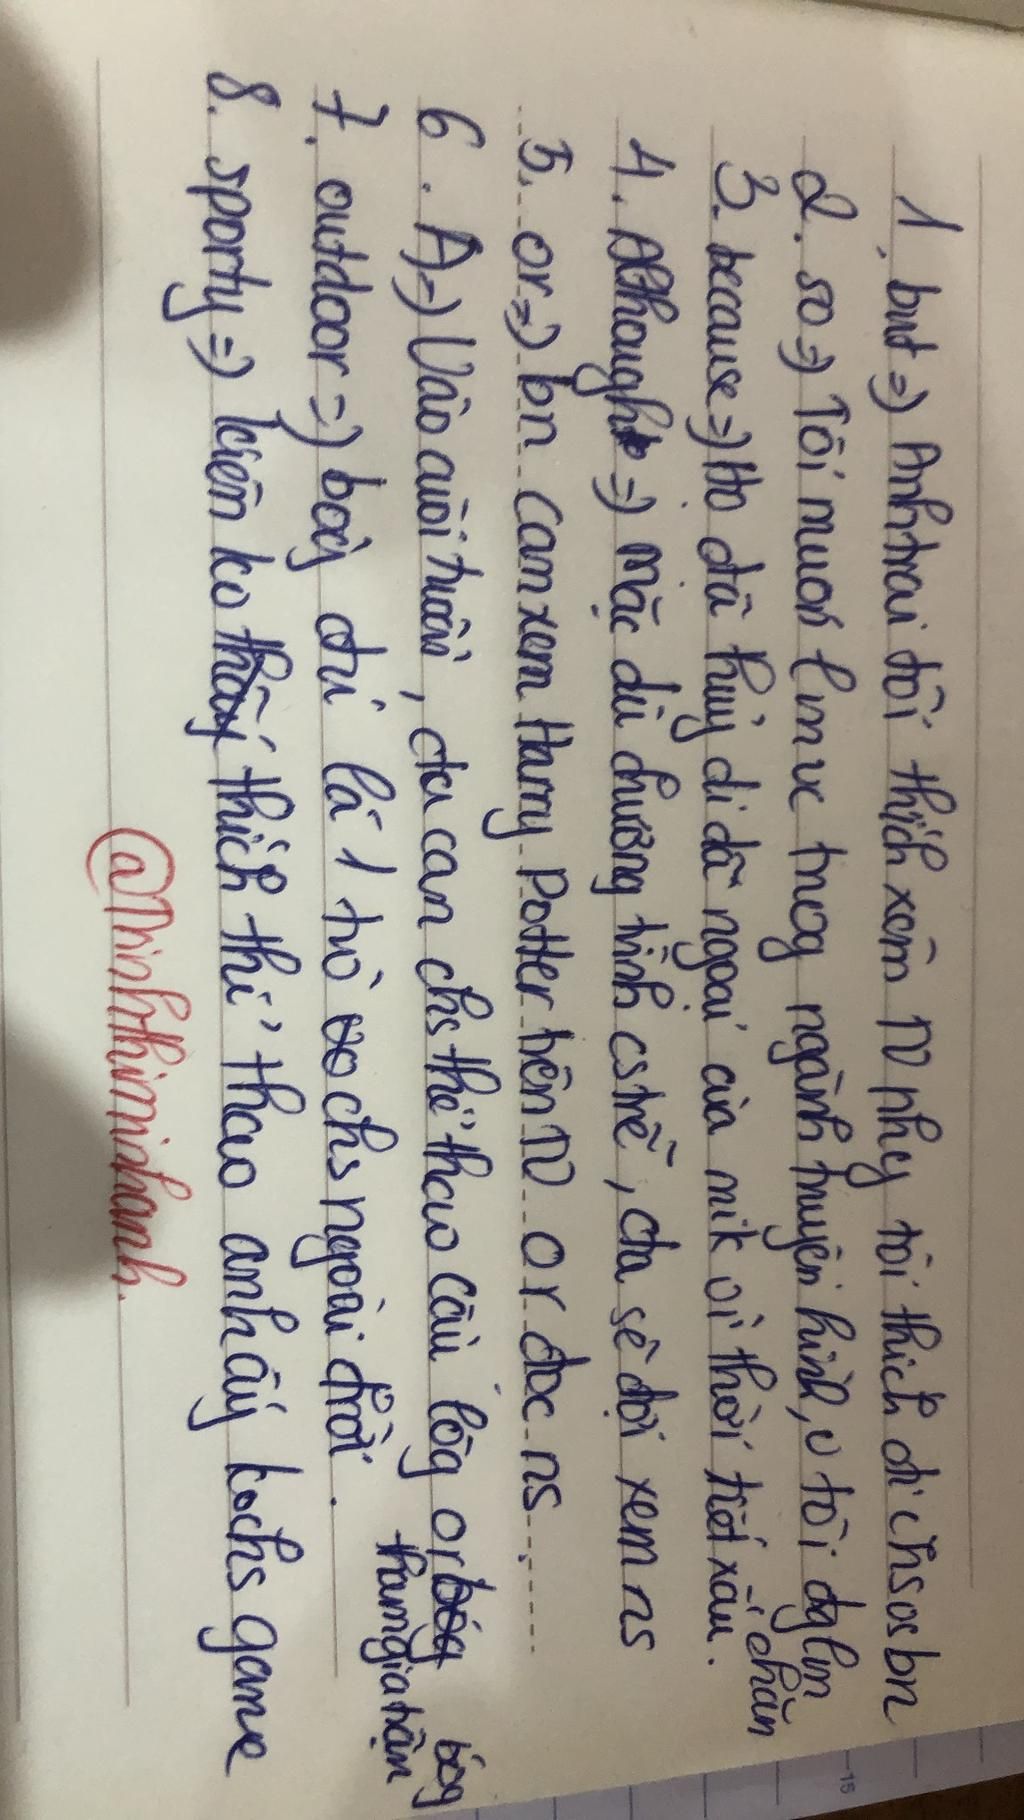 1. but => Anh trai tôi thích xem TV nhg tôi thích đi chs vs bn
2. so => Tôi muốn lm vc trog ngành truyền hình, v tôi dg lm chăm
3. because => Họ đã hủy dã ngoại của mik vì thời tiết xấu.
4. Although => mặc dù chương trình cs trễ, cta sẽ đợi xem ns
5. or => bn can xem Harry Potter trên TV or đọc ns.
6. A => Vào cuối tuần, cta can chs thể thao cầu lôg or bóg
tham gia trận
7. outdoor => bóg đá là 1 trò chs ngoài trời.
8. sporty => kiên ko thấy thích thể thao anh ấy ko chs game
@Trinhthiminhanh.
15